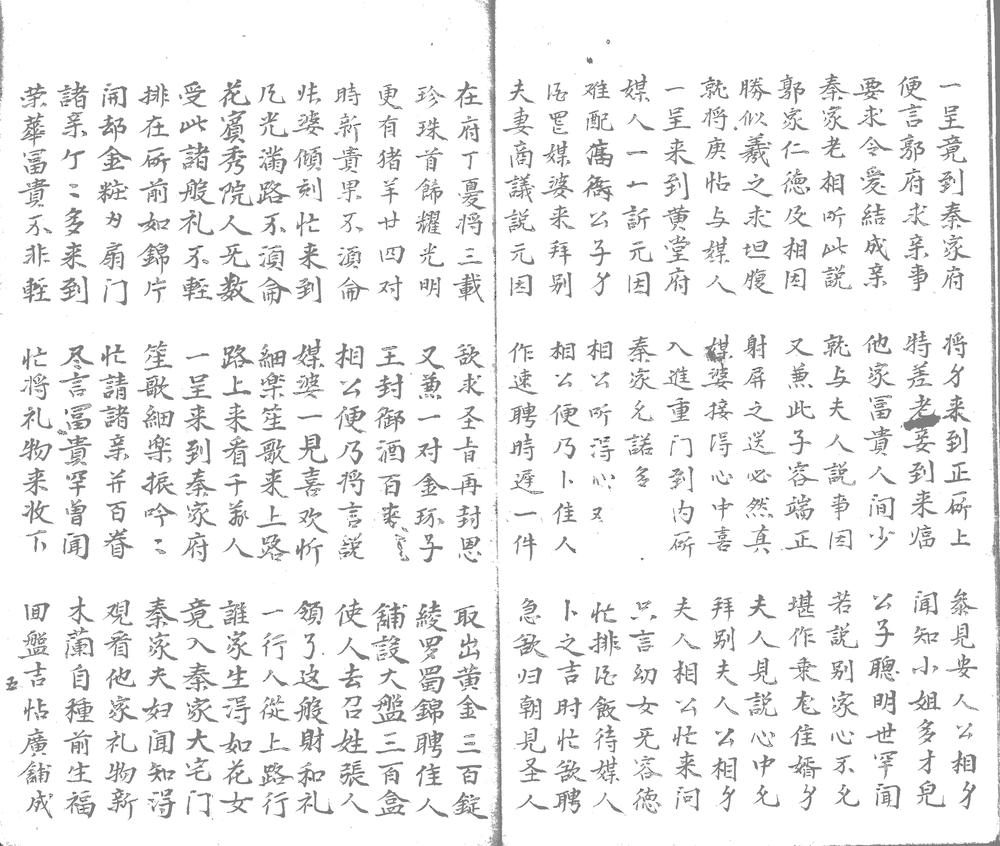 一呈竟到秦家府 將身来到正所上 叅見安人公相身
便言郭府求亲事 特差老妾到来 闻知小姐多才皃
要求令爱結成亲 他家冨貴人间少 公子聰明世罕闻
秦家老相所此說 就与夫人說事因 若說别家心不允
郭家仁德及相因 又兼此子容端正 堪作乘龙佳婿身
勝似羲之求坦腹 射屏之送必然真 夫人見說心中允
就將庚帖与媒人 媒婆接得心中喜 拜别夫人公相身
一呈来到黄堂府 入進重门到内所 夫人相公忙来问
媒人一一訴元因 秦家允諾多 只言幼女无容德
难配公子身 相公所得心又 忙排酒飯待媒人
酒罢媒婆来拜别 相公便乃卜佳人 卜之吉时忙欲聘
夫妻商議説元因 作速聘時遲一件 急欲归朝見圣人
在府丁憂将三載 欲求圣旨再封恩 取出黄金三百錠
珍珠首飾耀光明 又兼一对金环子 綾罗蜀錦聘佳人
更有猪羊廿四对 王封御酒百来 舖設大盤三百盒
時新貴果不湏侖 相公便乃将言説 使人去召姓張人
婆傾刻忙来到 媒婆一見喜欢忻 領了这般財和礼
凢光满路不湏侖 細樂笙歌来上路 一行人從上路行
花賔秀院人无数 路上来看千萬人 誰家生得如花女
受此諸般礼不輕 一呈来到秦家府 竟入秦家大宅门
排在所前如錦片 笙歌細樂振吟〻 秦家夫妇闻知得
開却金粧为扇门 忙請諸亲并百眷 覌看他家礼物新
諸亲个〻多来到 尽言冨貴罕曽闻 木蘭自種前生福
荣華冨貴不非輕 忙将礼物来收下 回盤吉帖廣舖成
五